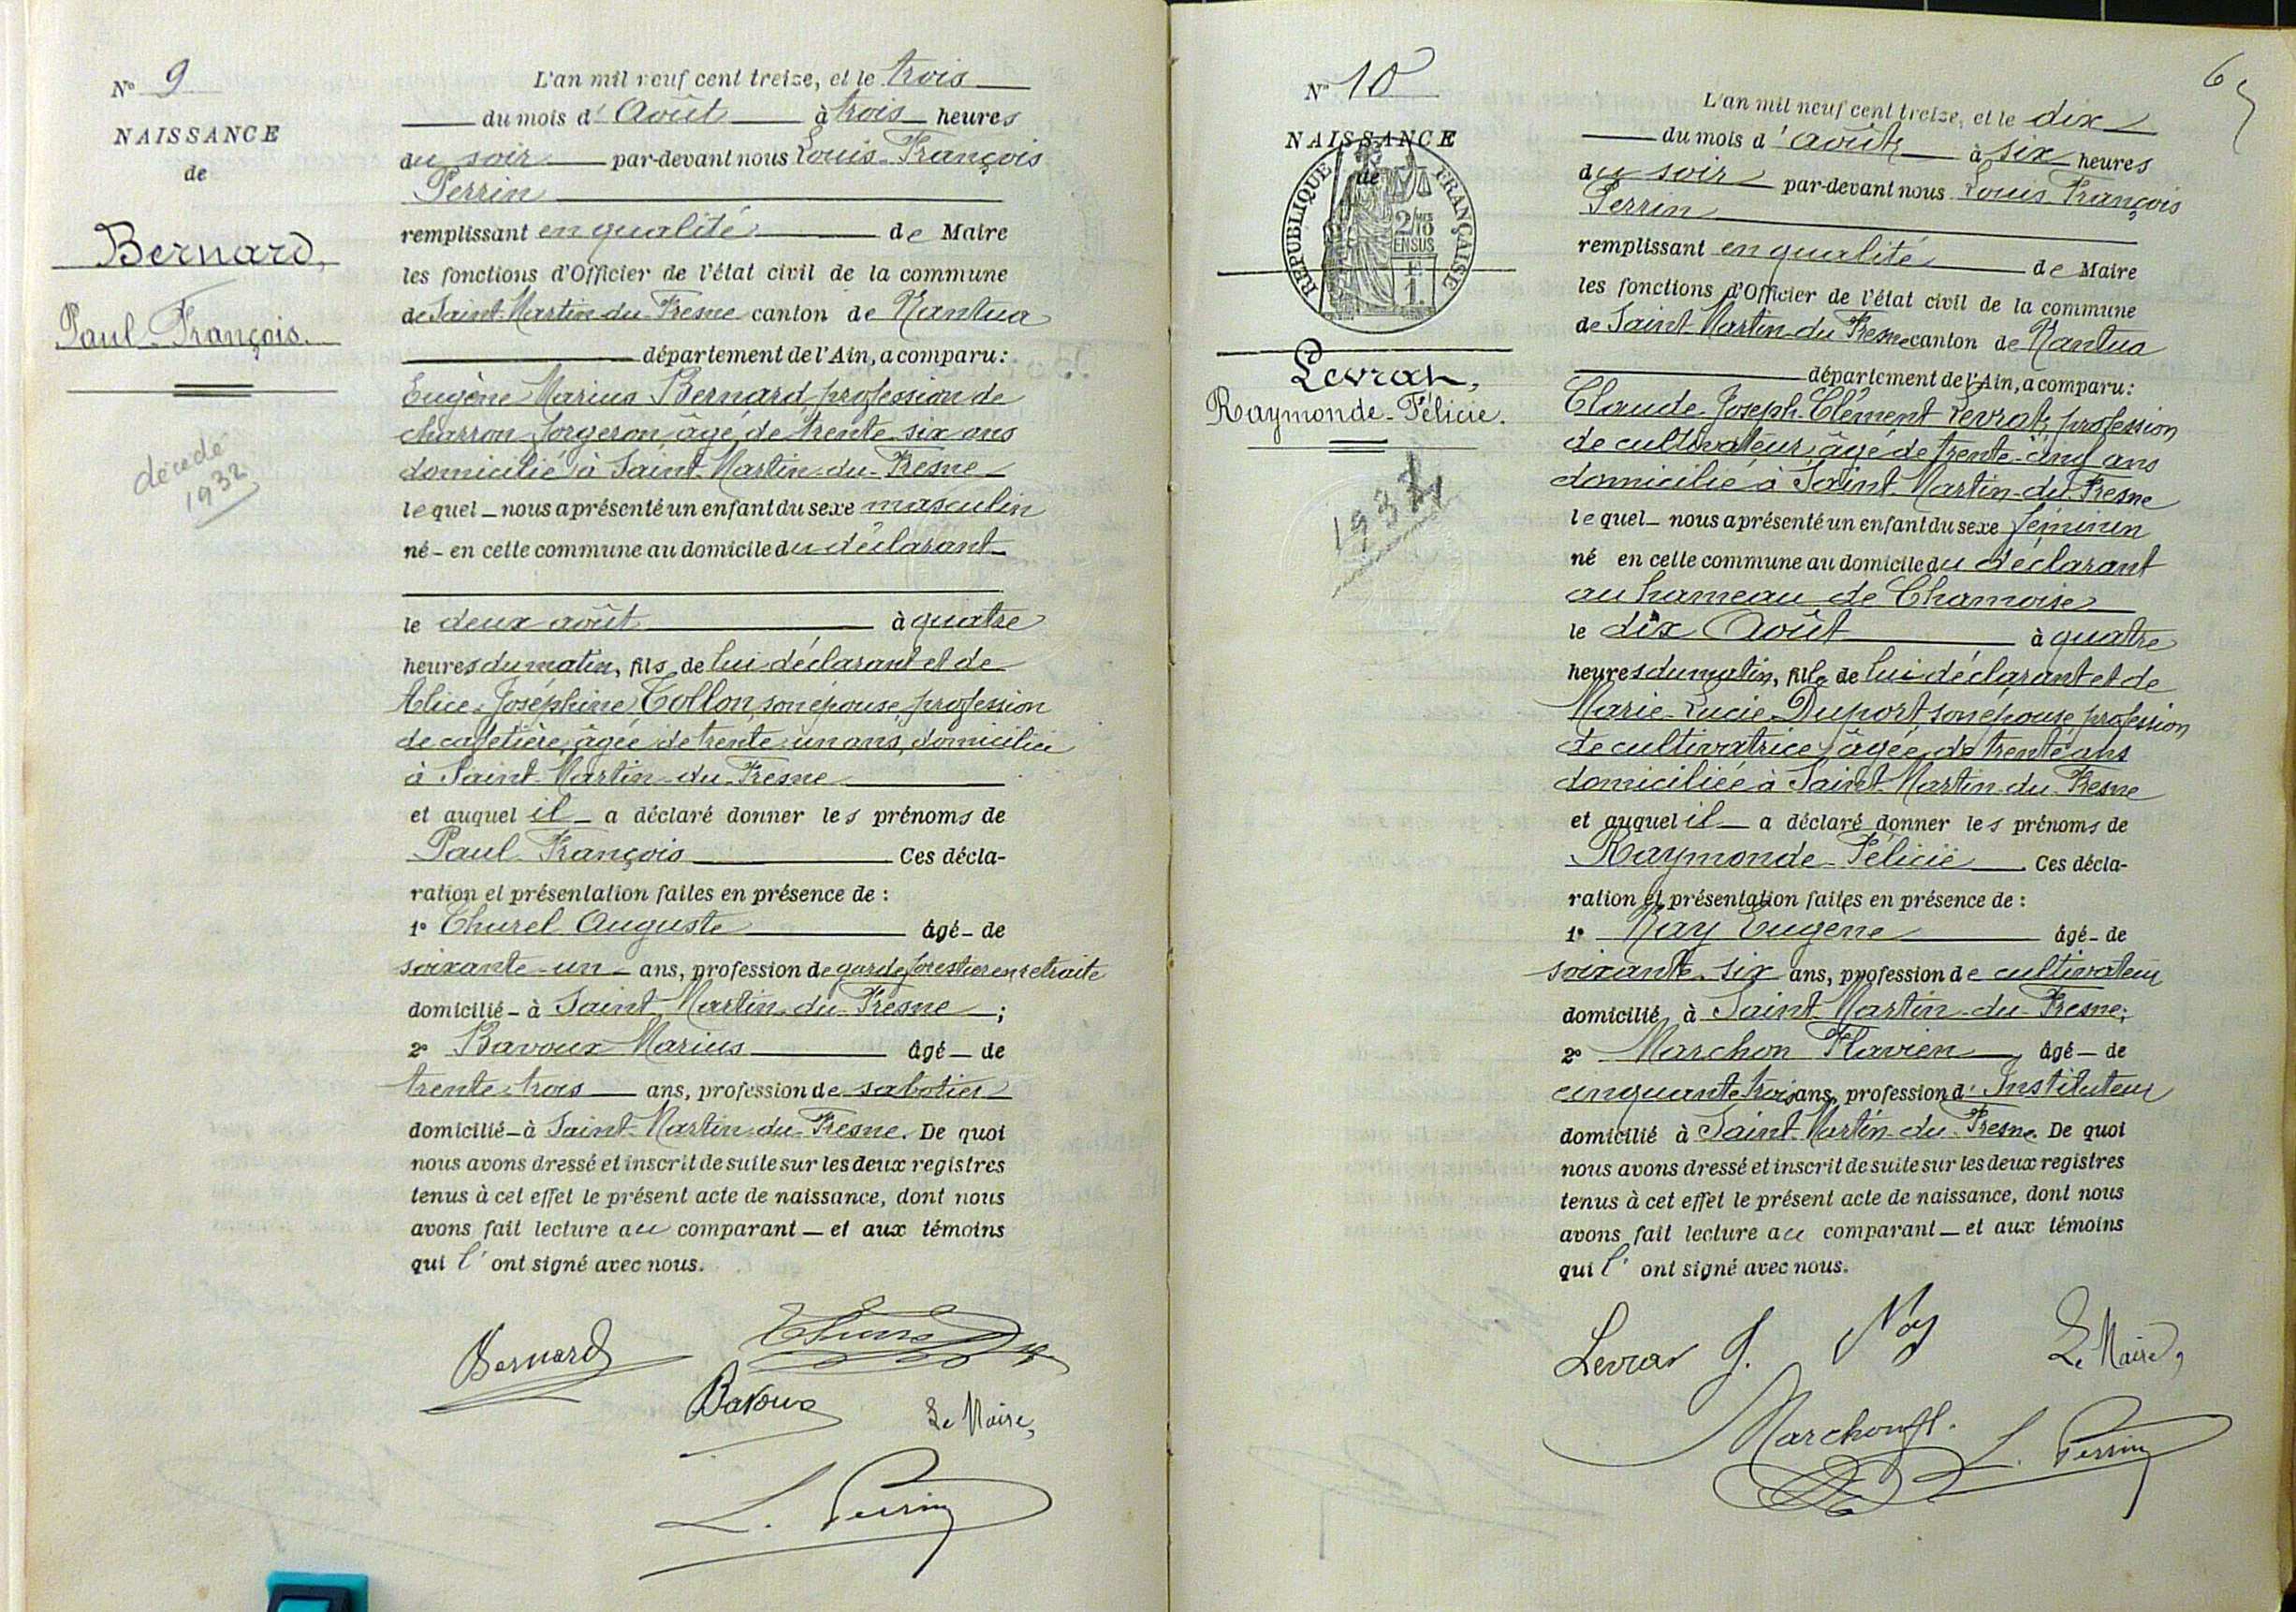 N° 9
NAISSANCE
de
Bernard,
Paul-François.
décédé
1932
L'an mil neuf cent treize, et le trois
du mois d'Août à trois heures
du soir par-devant nous Louis-François
Perrin
remplissant en qualité de Maire
les fonctions d'Officier de l'état civil de la commune
de Saint-Martin-du-Fresne canton de Nantua
département de l'Ain, a comparu :
Eugène Marius Bernard, profession de
charron forgeron, âgé de trente-six ans
domicilié à Saint-Martin-du-Fresne
lequel nous a présenté un enfant du sexe masculin
né - en cette commune au domicile du déclarant
le deux août à quatre
heures du matin, fils de lui déclarant et de
Alice-Joséphine Collon, son épouse, profession
de cafetière, âgée de trente-un ans, domiciliée
à Saint-Martin-du-Fresne
et auquel il a déclaré donner les prénoms de
Paul-François Ces décla-
ration et présentation faites en présence de :
1° Thurel Auguste âgé - de
soixante-un ans, profession de garde forestier en retraite
domicilié - à Saint-Martin-du-Fresne ;
2° Bavoux Marius âgé - de
trente-trois ans, profession de sabotier
domicilié - à Saint-Martin-du-Fresne. De quoi
nous avons dressé et inscrit de suite sur les deux registres
tenus à cet effet le présent acte de naissance, dont nous
avons fait lecture au comparant - et aux témoins
qui l'ont signé avec nous.
Bernard Thurel
Bavoux Le Maire,
L. Perrin
6
N° 10
NAISSANCE
de
REPUBLIQUE FRANÇAISE
2/10
EN SUS
1F.
Levrat,
Raymonde-Félicie.
1932
L'an mil neuf cent treize, et le dix
du mois d'août à six heures
du soir par-devant nous Louis François
Perrin
remplissant en qualité de Maire
les fonctions d'Officier de l'état civil de la commune
de Saint-Martin-du-Fresne canton de Nantua
département de l'Ain, a comparu :
Claude-Joseph-Clément Levrat, profession
de cultivateur, âgé de trente-cinq ans
domicilié à Saint-Martin-du-Fresne
lequel nous a présenté un enfant du sexe féminin
né en cette commune au domicile du déclarant
au hameau de Chamoise
le dix Août à quatre
heures du matin, fille de lui déclarant et de
Marie-Lucie Duport son épouse, profession
de cultivatrice, âgée de trente ans
domiciliée à Saint-Martin-du-Fresne
et auquel il a déclaré donner les prénoms de
Raymonde-Félicie Ces décla-
ration et présentation faites en présence de :
1° Nay Eugène âgé - de
soixante-six ans, profession de cultivateur
domicilié à Saint-Martin-du-Fresne ;
2° Marchon Flavien, âgé - de
cinquante trois ans, profession d'Instituteur
domicilié à Saint-Martin-du-Fresne. De quoi
nous avons dressé et inscrit de suite sur les deux registres
tenus à cet effet le présent acte de naissance, dont nous
avons fait lecture au comparant - et aux témoins
qui l'ont signé avec nous.
Levrat J. Nay Le Maire,
Marchon fl. L. Perrin